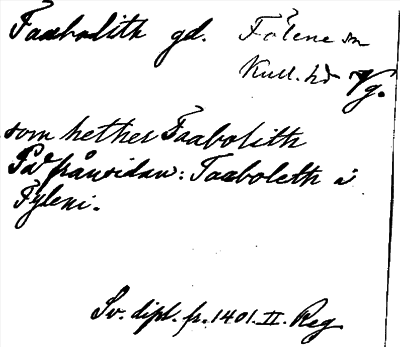 Faabolith gd. Fölene sn
Kull. hd Vg.
som hether Faabolith
På frånsidan: Taaboleth i
Fyleni.
Sv. dipl. fr. 1401. II. Reg.